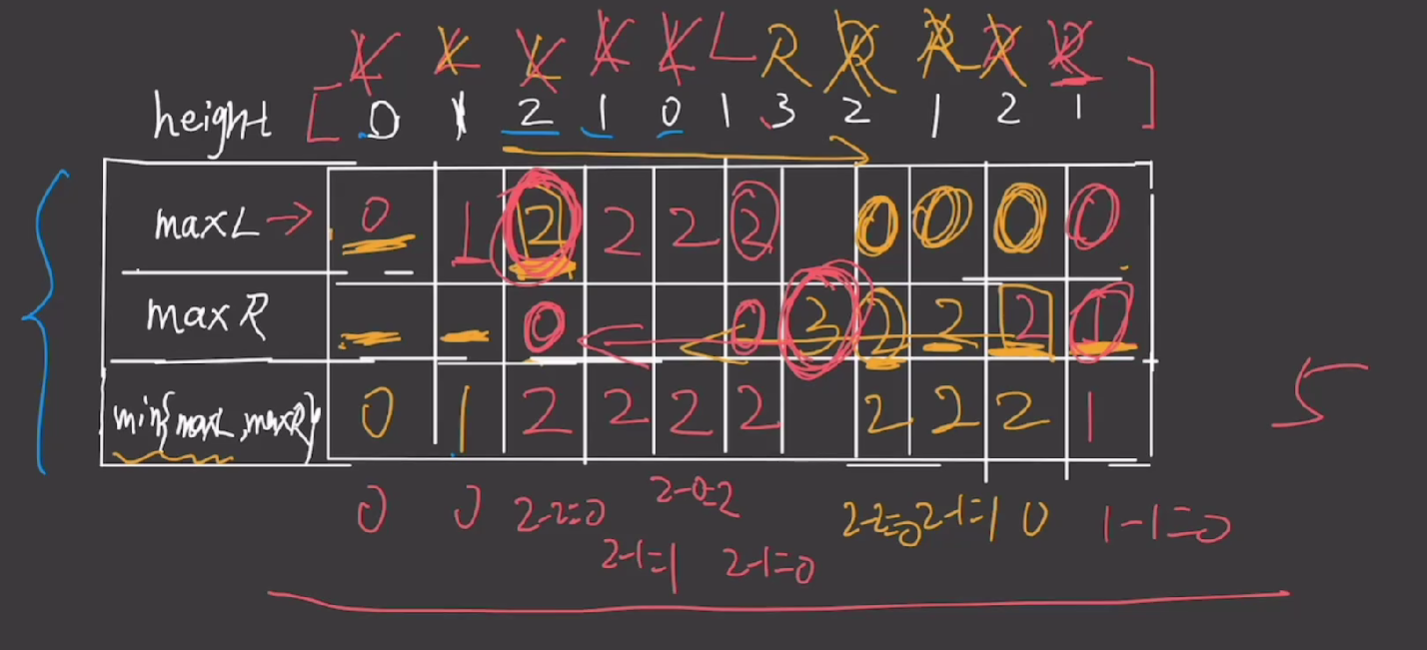 L L L L L L R R R R R
height [ 0 1 2 1 0 1 3 2 1 2 1 ]
maxL → 0 1 2 2 2 2 0 0 0 0
maxR 0 0 3 2 2 2 1
min{maxL,maxR} 0 1 2 2 2 2 2 2 2 1
5
0 0 2-2=0 2-0=2 2-2=0 2-1=1 0 1-1=0
2-1=1 2-1=0